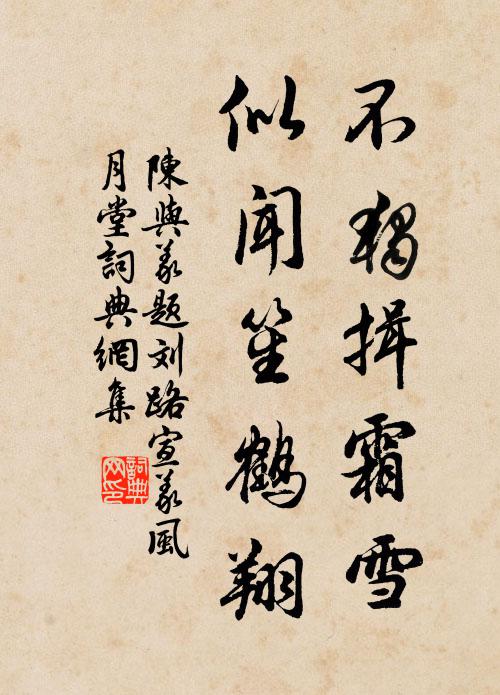 不獨揖霜雪
似聞笙鶴翔
陳與義題刘路宣義風
月堂詞典網集
詞典
网印